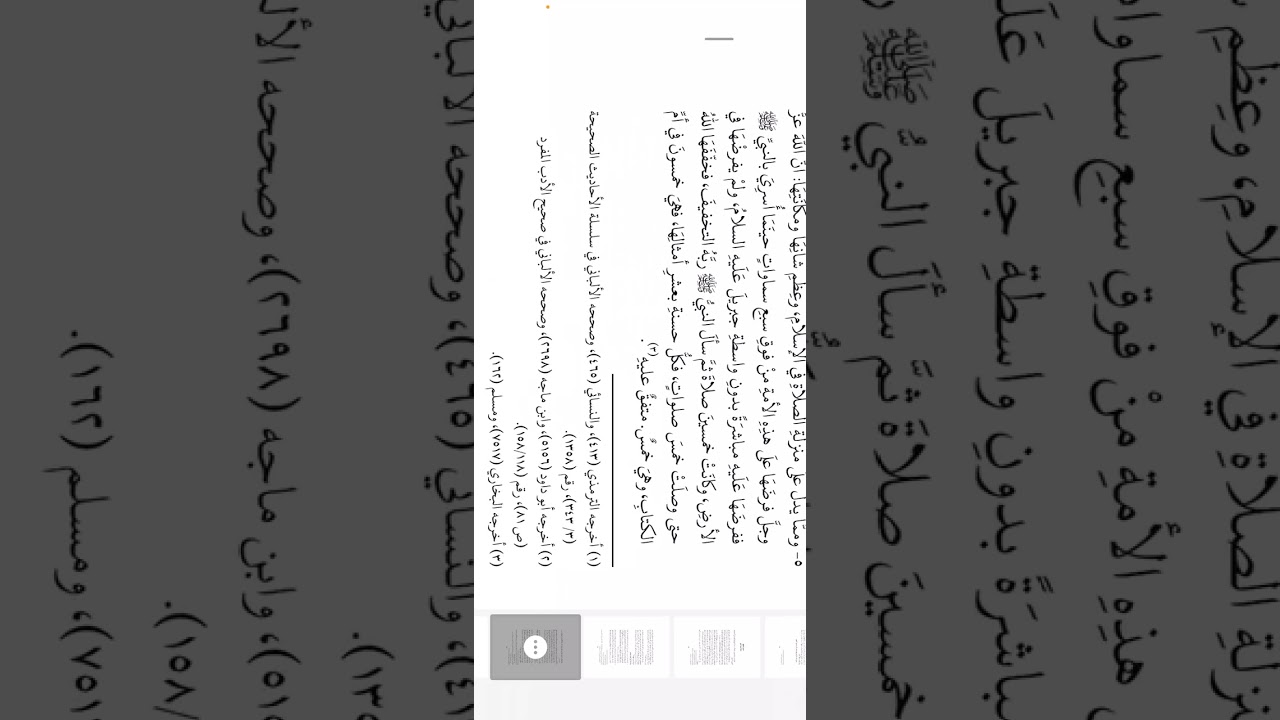 ٥- وممَّا يدلُّ على منزلةِ الصلاةِ في الإسلامِ، وعِظَمِ شأنِهَا ومكانَتِهَا: أنَّ اللَّهَ عزَّ
وجلَّ فرضَهَا على هذِهِ الأمةِ منْ فوقِ سبعِ سماواتٍ حينَمَا أُسرِيَ بالنبيِّ ﷺ
ففرضَهَا عَلَيه مباشرَةً بدونِ واسطةِ جبريلَ عَلَيه السلامُ، ولمْ يفرضْهَا في
الأرضِ، وكانَتْ خمسينَ صلاةً ثمَّ سألَ النبيُّ ﷺ ربَّهُ التخفيفَ، فخفَّفَهَا اللهُ
حتى وصلَتْ خمسَ صلواتٍ، فكلُّ حسنةٍ بعشرِ أمثالِهَا، فهيَ خمسونَ في أمِّ
الكتابِ، وهيَ خمسٌ. متفقٌ عليهِ(٣).
(١) أخرجه الترمذي (٤١٣)، والنسائي (٤٦٥)، وصححه الألباني في سلسلة الأحاديث الصحيحة
(٣/ ٣٤٣)، رقم (١٣٥٨).
(٢) أخرجه أبو داود (٥١٥٦)، وابن ماجه (٢٦٩٨)، وصححه الألباني في صحيح الأدب المفرد
(ص ٨١)، رقم (١٥٨/١١٨).
(٣) أخرجه البخاري (٧٥١٧)، ومسلم (١٦٢).